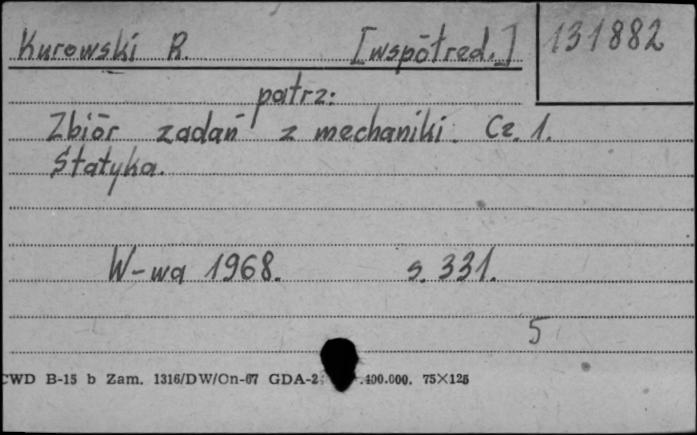 Kurowski R. [współred.] 131882
patrz:
Zbiór zadań z mechaniki. Cz. 1.
Statyka.
W-wa 1968. s. 331.
5
CWD B-15 b Zam. 1316/DW/On-67 GDA-2 .400.000. 75×125